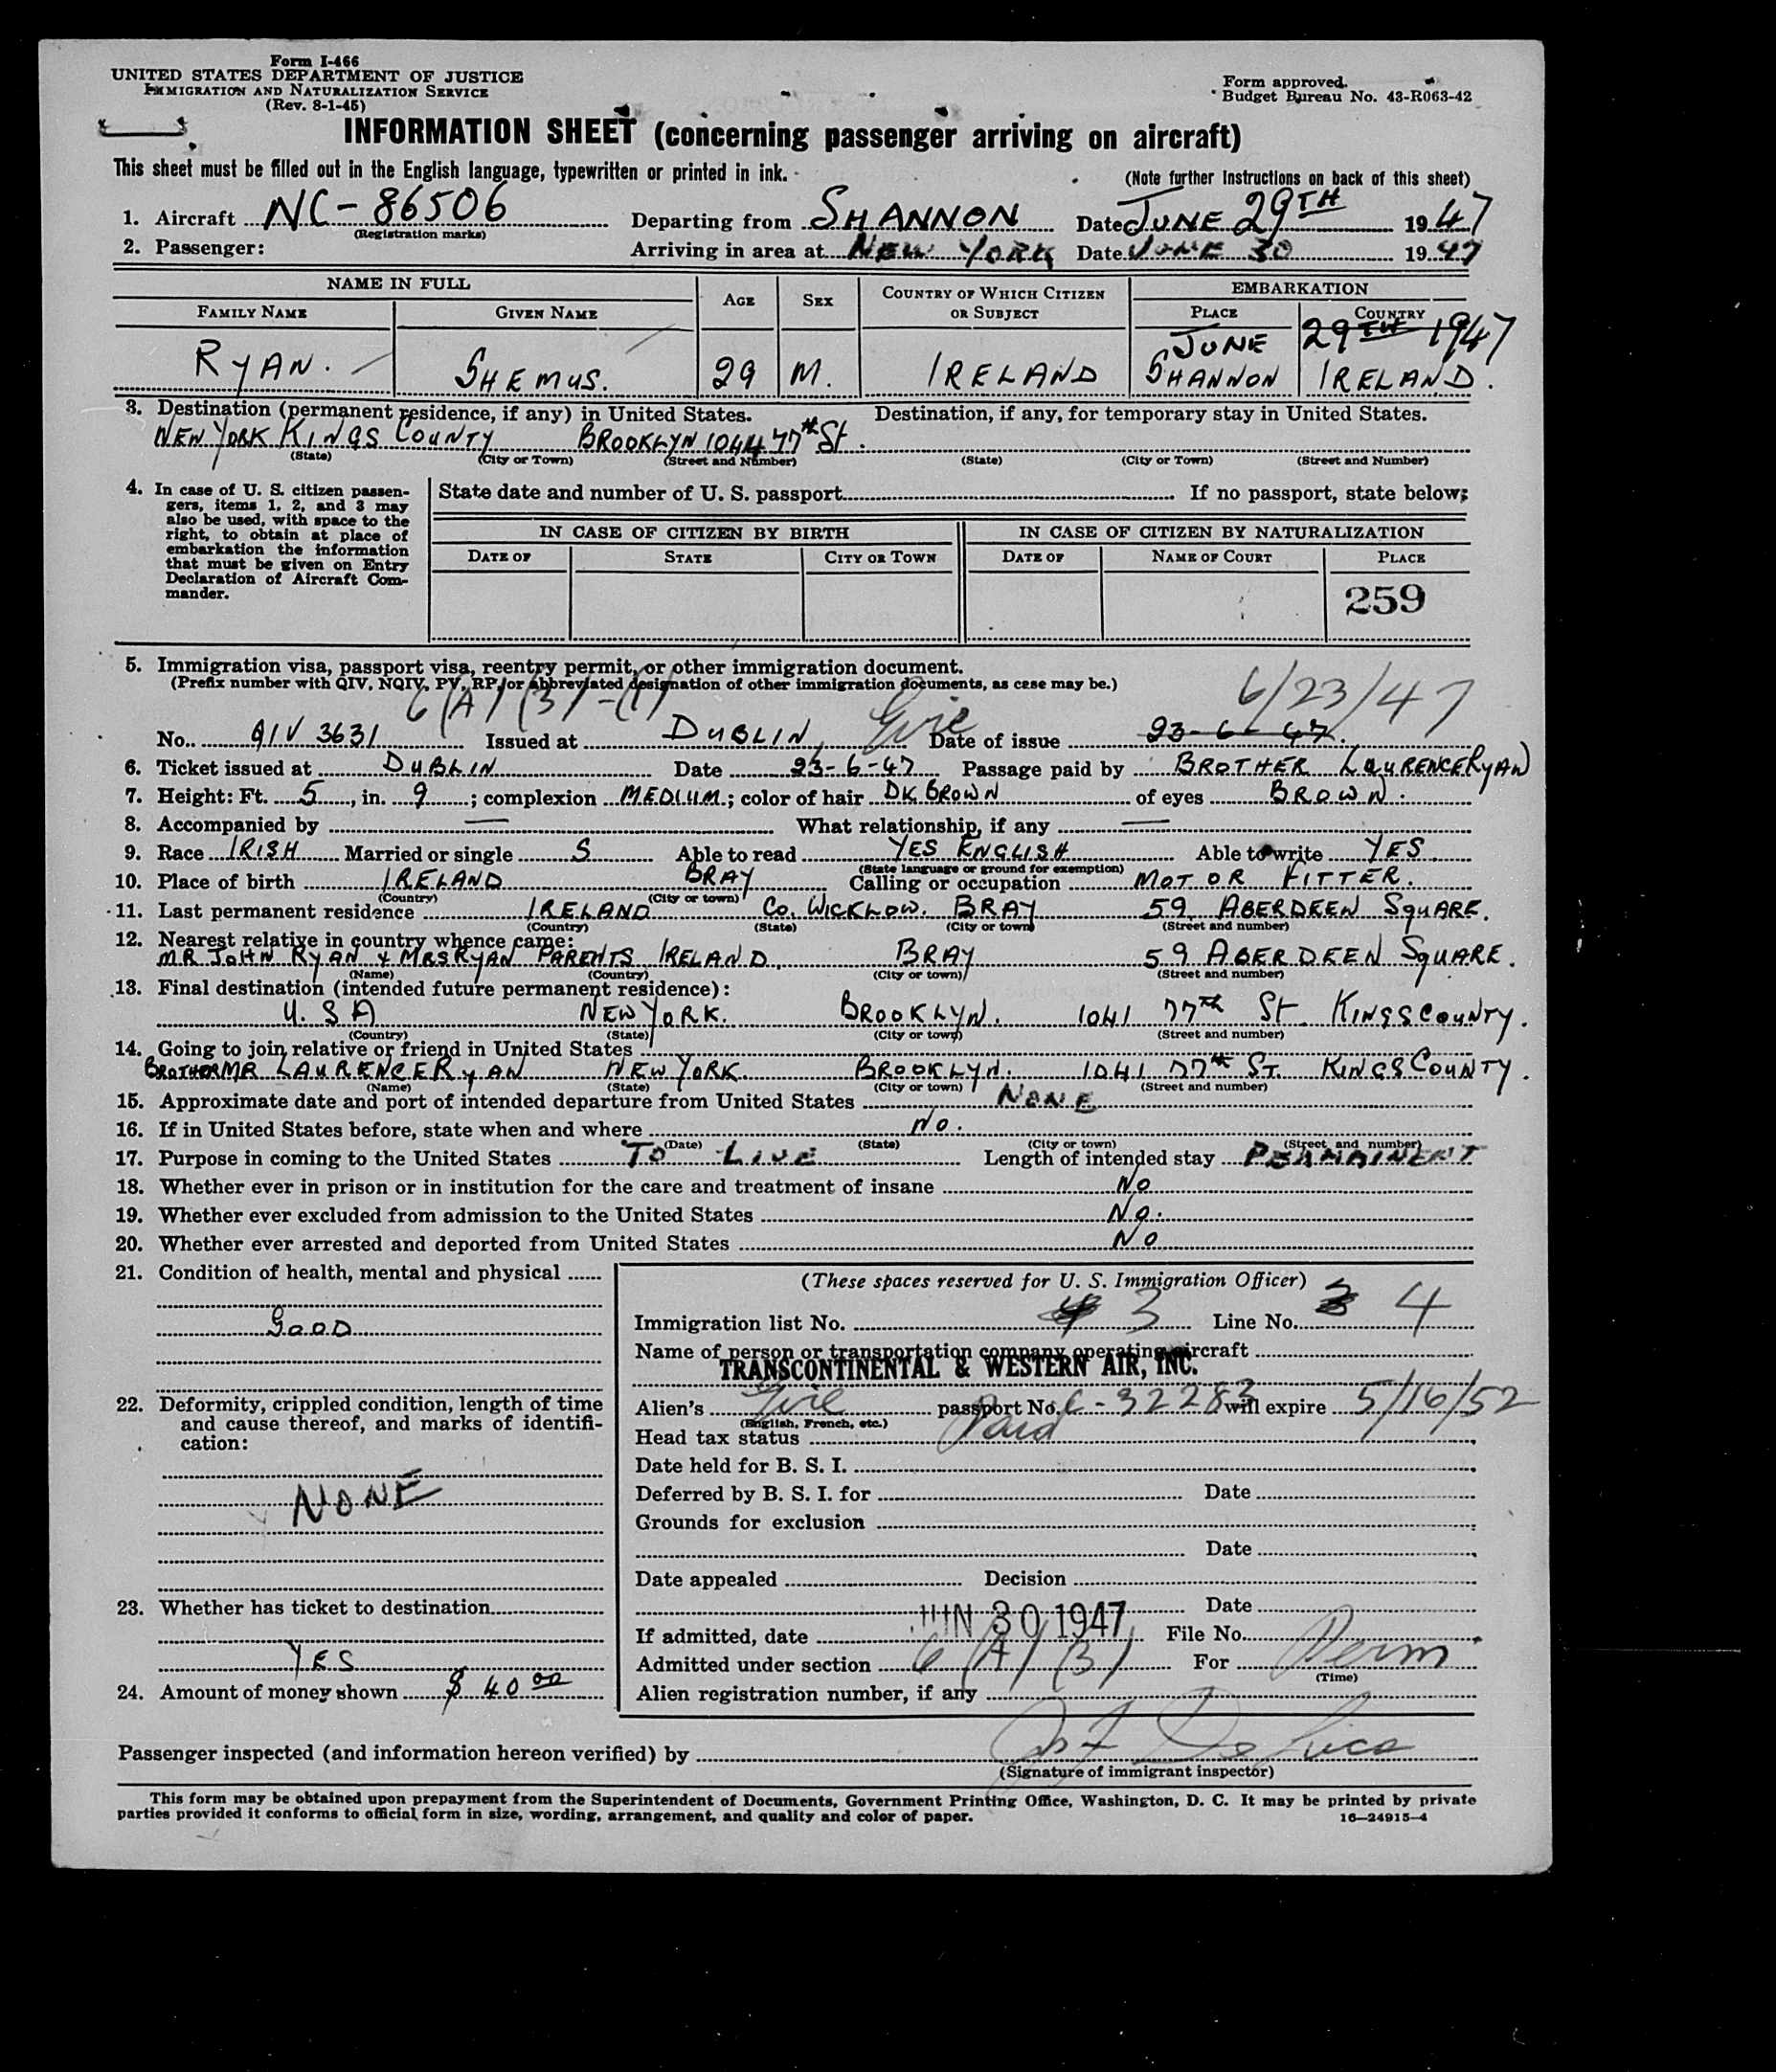 Form I-466
UNITED STATES DEPARTMENT OF JUSTICE
IMMIGRATION AND NATURALIZATION SERVICE
(Rev. 8-1-45)
Form approved.
Budget Bureau No. 43-R063-42
INFORMATION SHEET (concerning passenger arriving on aircraft)
This sheet must be filled out in the English language, typewritten or printed in ink.
(Note further instructions on back of this sheet)
1. Aircraft NC-86506 Departing from SHANNON Date JUNE 29TH 1947
(Registration marks)
2. Passenger: Arriving in area at NEW YORK Date JUNE 30 1947
NAME IN FULL AGE SEX COUNTRY OF WHICH CITIZEN OR SUBJECT EMBARKATION
FAMILY NAME GIVEN NAME PLACE COUNTRY
JUNE 29TH 1947
RYAN. SHEMUS. 29 M. IRELAND SHANNON IRELAND.
3. Destination (permanent residence, if any) in United States. Destination, if any, for temporary stay in United States.
NEW YORK KINGS COUNTY BROOKLYN 1044 77th St.
(State) (City or Town) (Street and Number) (State) (City or Town) (Street and Number)
4. In case of U. S. citizen passen-
gers, items 1, 2, and 3 may
also be used, with space to the
right, to obtain at place of
embarkation the information
that must be given on Entry
Declaration of Aircraft Com-
mander.
State date and number of U. S. passport If no passport, state below:
IN CASE OF CITIZEN BY BIRTH IN CASE OF CITIZEN BY NATURALIZATION
DATE OF STATE CITY OR TOWN DATE OF NAME OF COURT PLACE
259
5. Immigration visa, passport visa, reentry permit, or other immigration document.
(Prefix number with QIV, NQIV, PV, RP, or abbreviated designation of other immigration documents, as case may be.)
6(A)(3)-(1) 6/23/47
No. QIV 3631 Issued at DUBLIN, Eire Date of issue 23-6-47.
6. Ticket issued at DUBLIN Date 23-6-47 Passage paid by BROTHER LAURENCE RYAN
7. Height: Ft. 5, in. 9; complexion MEDIUM; color of hair DK BROWN of eyes BROWN.
8. Accompanied by — What relationship, if any —
9. Race IRISH Married or single S Able to read YES ENGLISH Able to write YES.
(State language or ground for exemption)
10. Place of birth IRELAND BRAY Calling or occupation MOTOR FITTER.
(Country) (City or town)
11. Last permanent residence IRELAND Co. WICKLOW. BRAY 59 ABERDEEN SQUARE.
(Country) (State) (City or town) (Street and number)
12. Nearest relative in country whence came:
MR JOHN RYAN & MRS RYAN PARENTS IRELAND. BRAY 59 ABERDEEN SQUARE.
(Name) (Country) (City or town) (Street and number)
13. Final destination (intended future permanent residence):
U. S A NEW YORK. BROOKLYN. 1041 77th St. KINGS COUNTY.
(Country) (State) (City or town) (Street and number)
14. Going to join relative or friend in United States
BROTHER MR LAURENCE RYAN NEW YORK. BROOKLYN. 1041 77th ST. KINGS COUNTY.
(Name) (State) (City or town) (Street and number)
15. Approximate date and port of intended departure from United States NONE
16. If in United States before, state when and where No.
(Date) (State) (City or town) (Street and number)
17. Purpose in coming to the United States TO LIVE Length of intended stay PERMAINENT
18. Whether ever in prison or in institution for the care and treatment of insane No
19. Whether ever excluded from admission to the United States No.
20. Whether ever arrested and deported from United States No
21. Condition of health, mental and physical
GOOD
22. Deformity, crippled condition, length of time
and cause thereof, and marks of identifi-
cation:
NONE
23. Whether has ticket to destination
YES
24. Amount of money shown $ 40 00
(These spaces reserved for U. S. Immigration Officer)
Immigration list No. 3 Line No. 4
Name of person or transportation company operating aircraft
TRANSCONTINENTAL & WESTERN AIR, INC.
Alien's Eire passport No. C-32283 will expire 5/16/52
(English, French, etc.)
Head tax status Paid
Date held for B. S. I.
Deferred by B. S. I. for Date
Grounds for exclusion
Date
Date appealed Decision
Date
If admitted, date JUN 30 1947 File No.
Admitted under section 6(A)(3) For Perm
(Time)
Alien registration number, if any
Passenger inspected (and information hereon verified) by
(Signature of immigrant inspector)
This form may be obtained upon prepayment from the Superintendent of Documents, Government Printing Office, Washington, D. C. It may be printed by private
parties provided it conforms to official form in size, wording, arrangement, and quality and color of paper. 16—24915-4